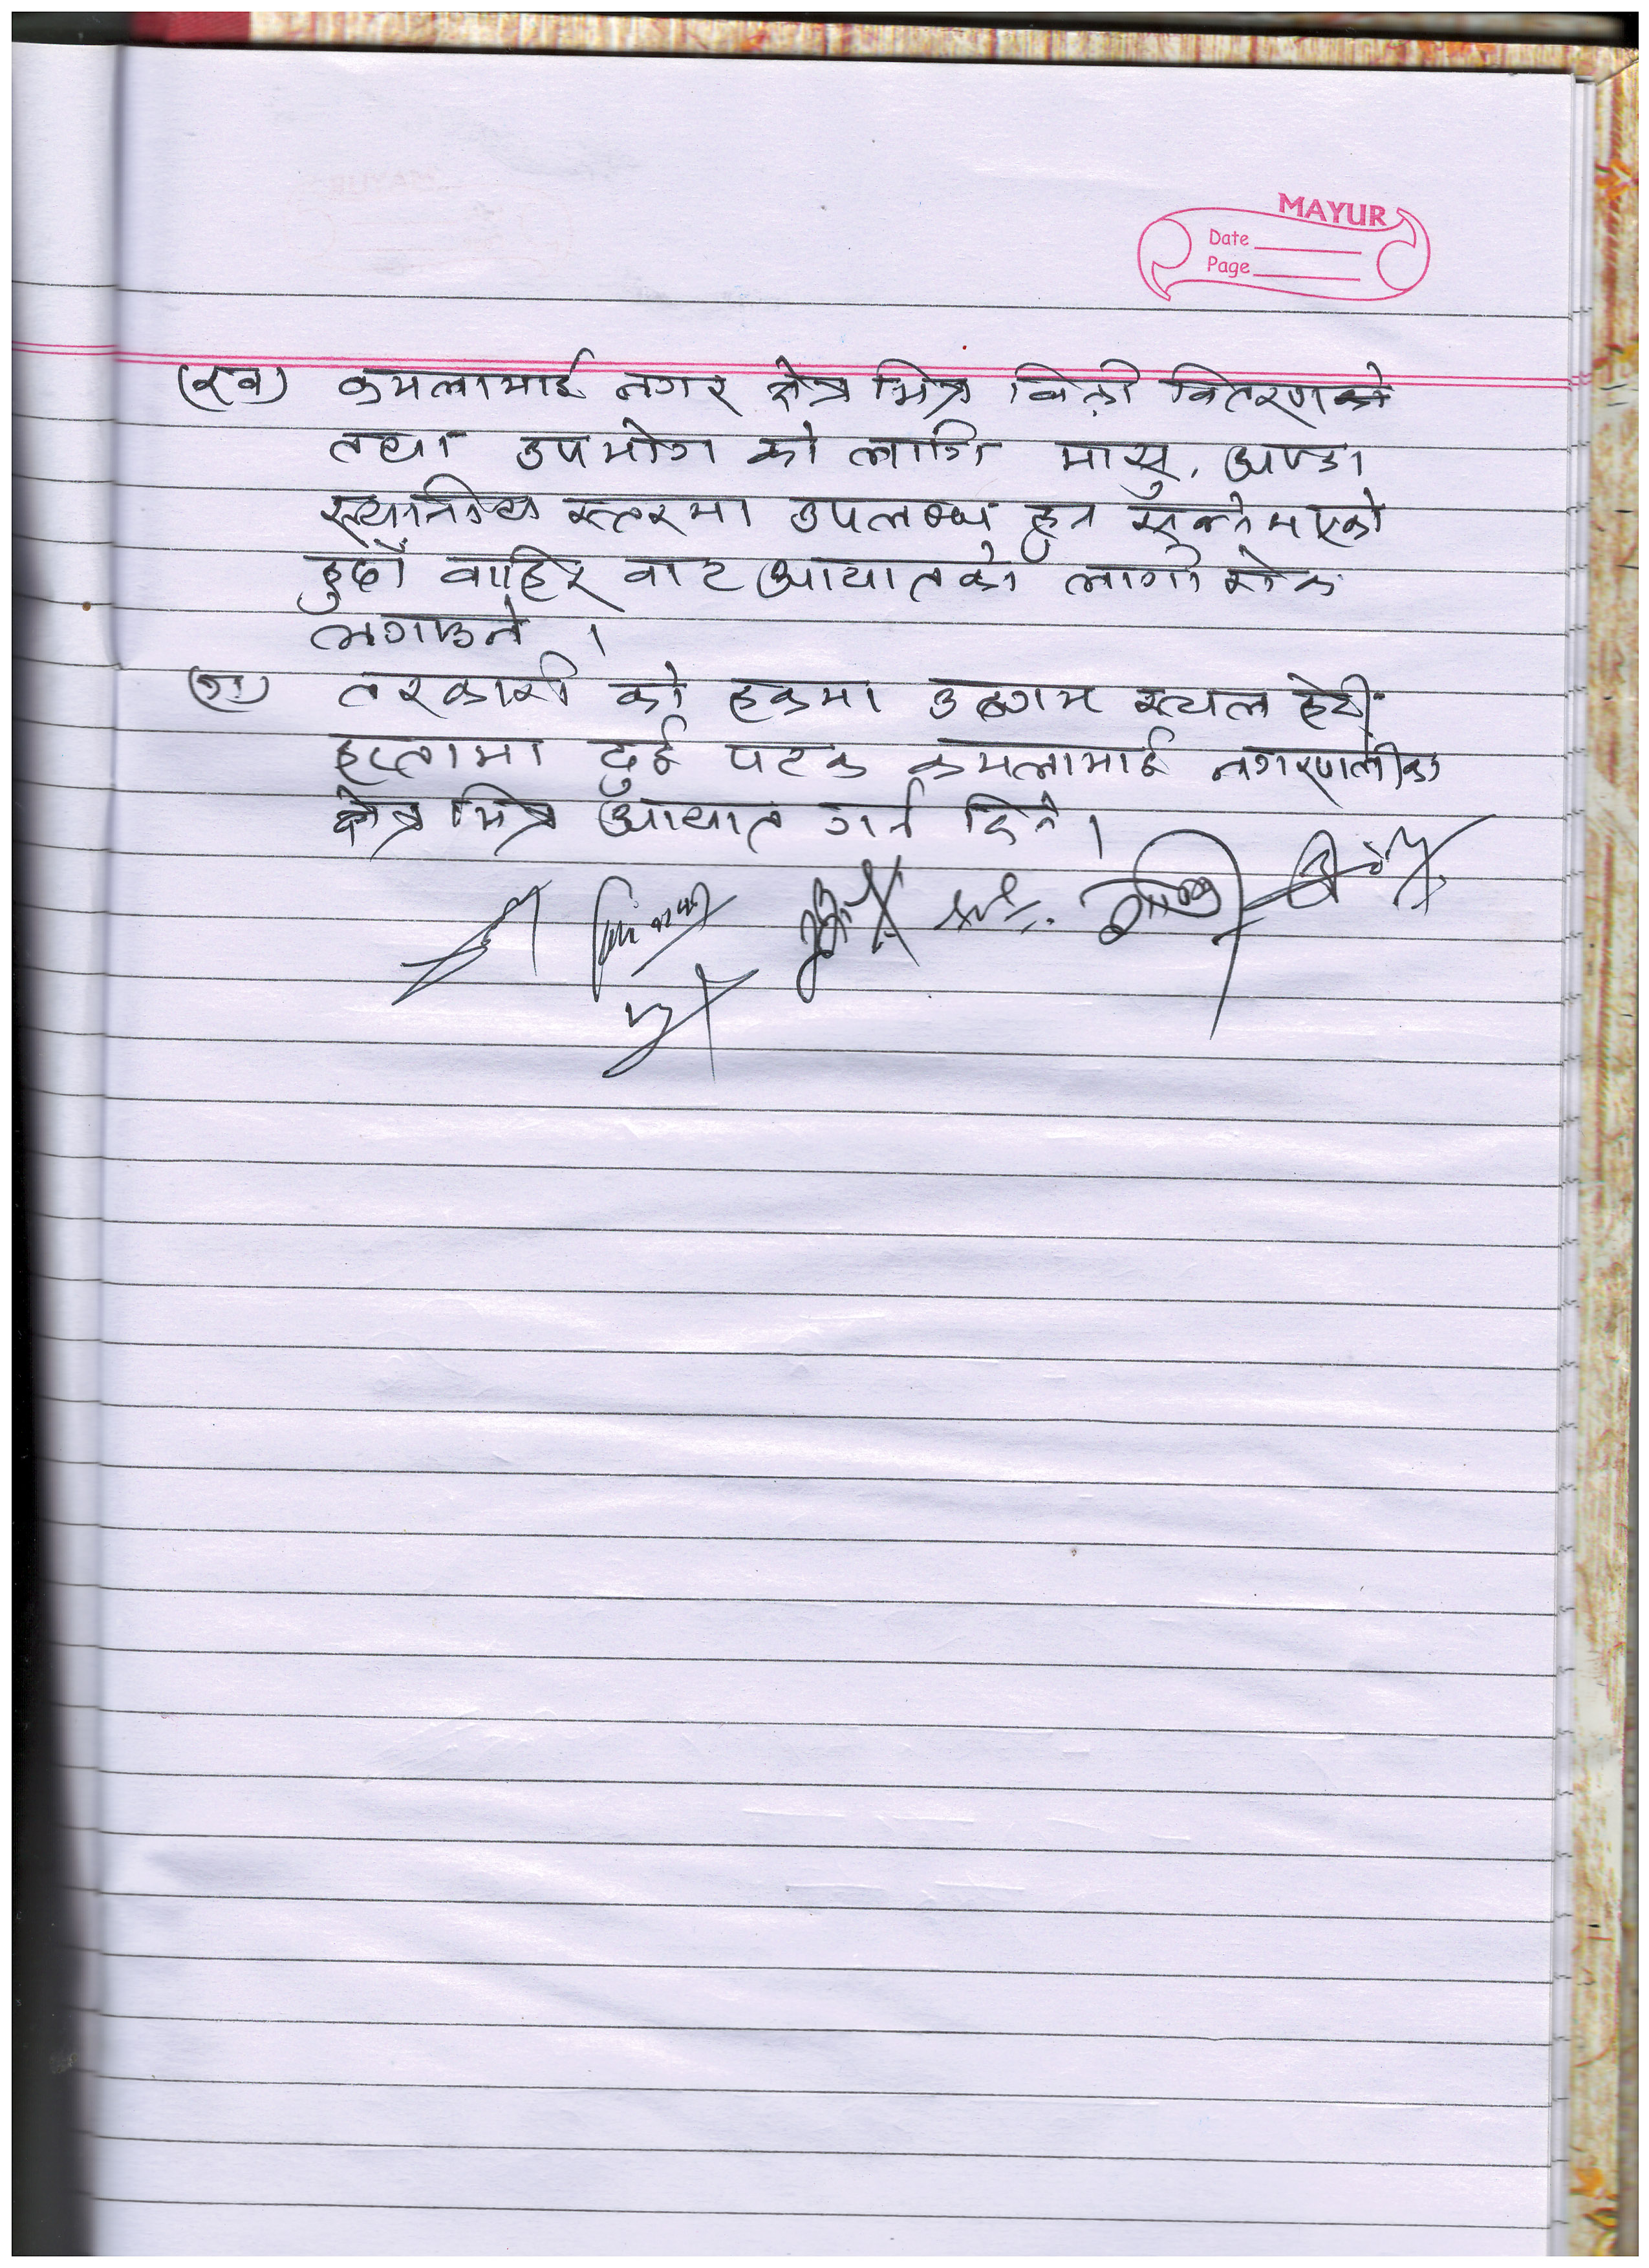 MAYUR
Date
Page
(ख) कमलामाई नगर क्षेत्र भित्र विक्री वितरणको
तथा उपभोग को लागि मासु, अण्डा
स्थानीय स्तरमा उपलब्ध हुन सक्ने भएको
हुदाँ वाहिर वाट आयातको लागी रोक
लगाउने ।
(ग) तरकारी को हकमा उद्गम स्थल हेरी
हप्तामा दुई पटक कमलामाई नगरपालीका
क्षेत्र भित्र आयात गर्न दिने ।